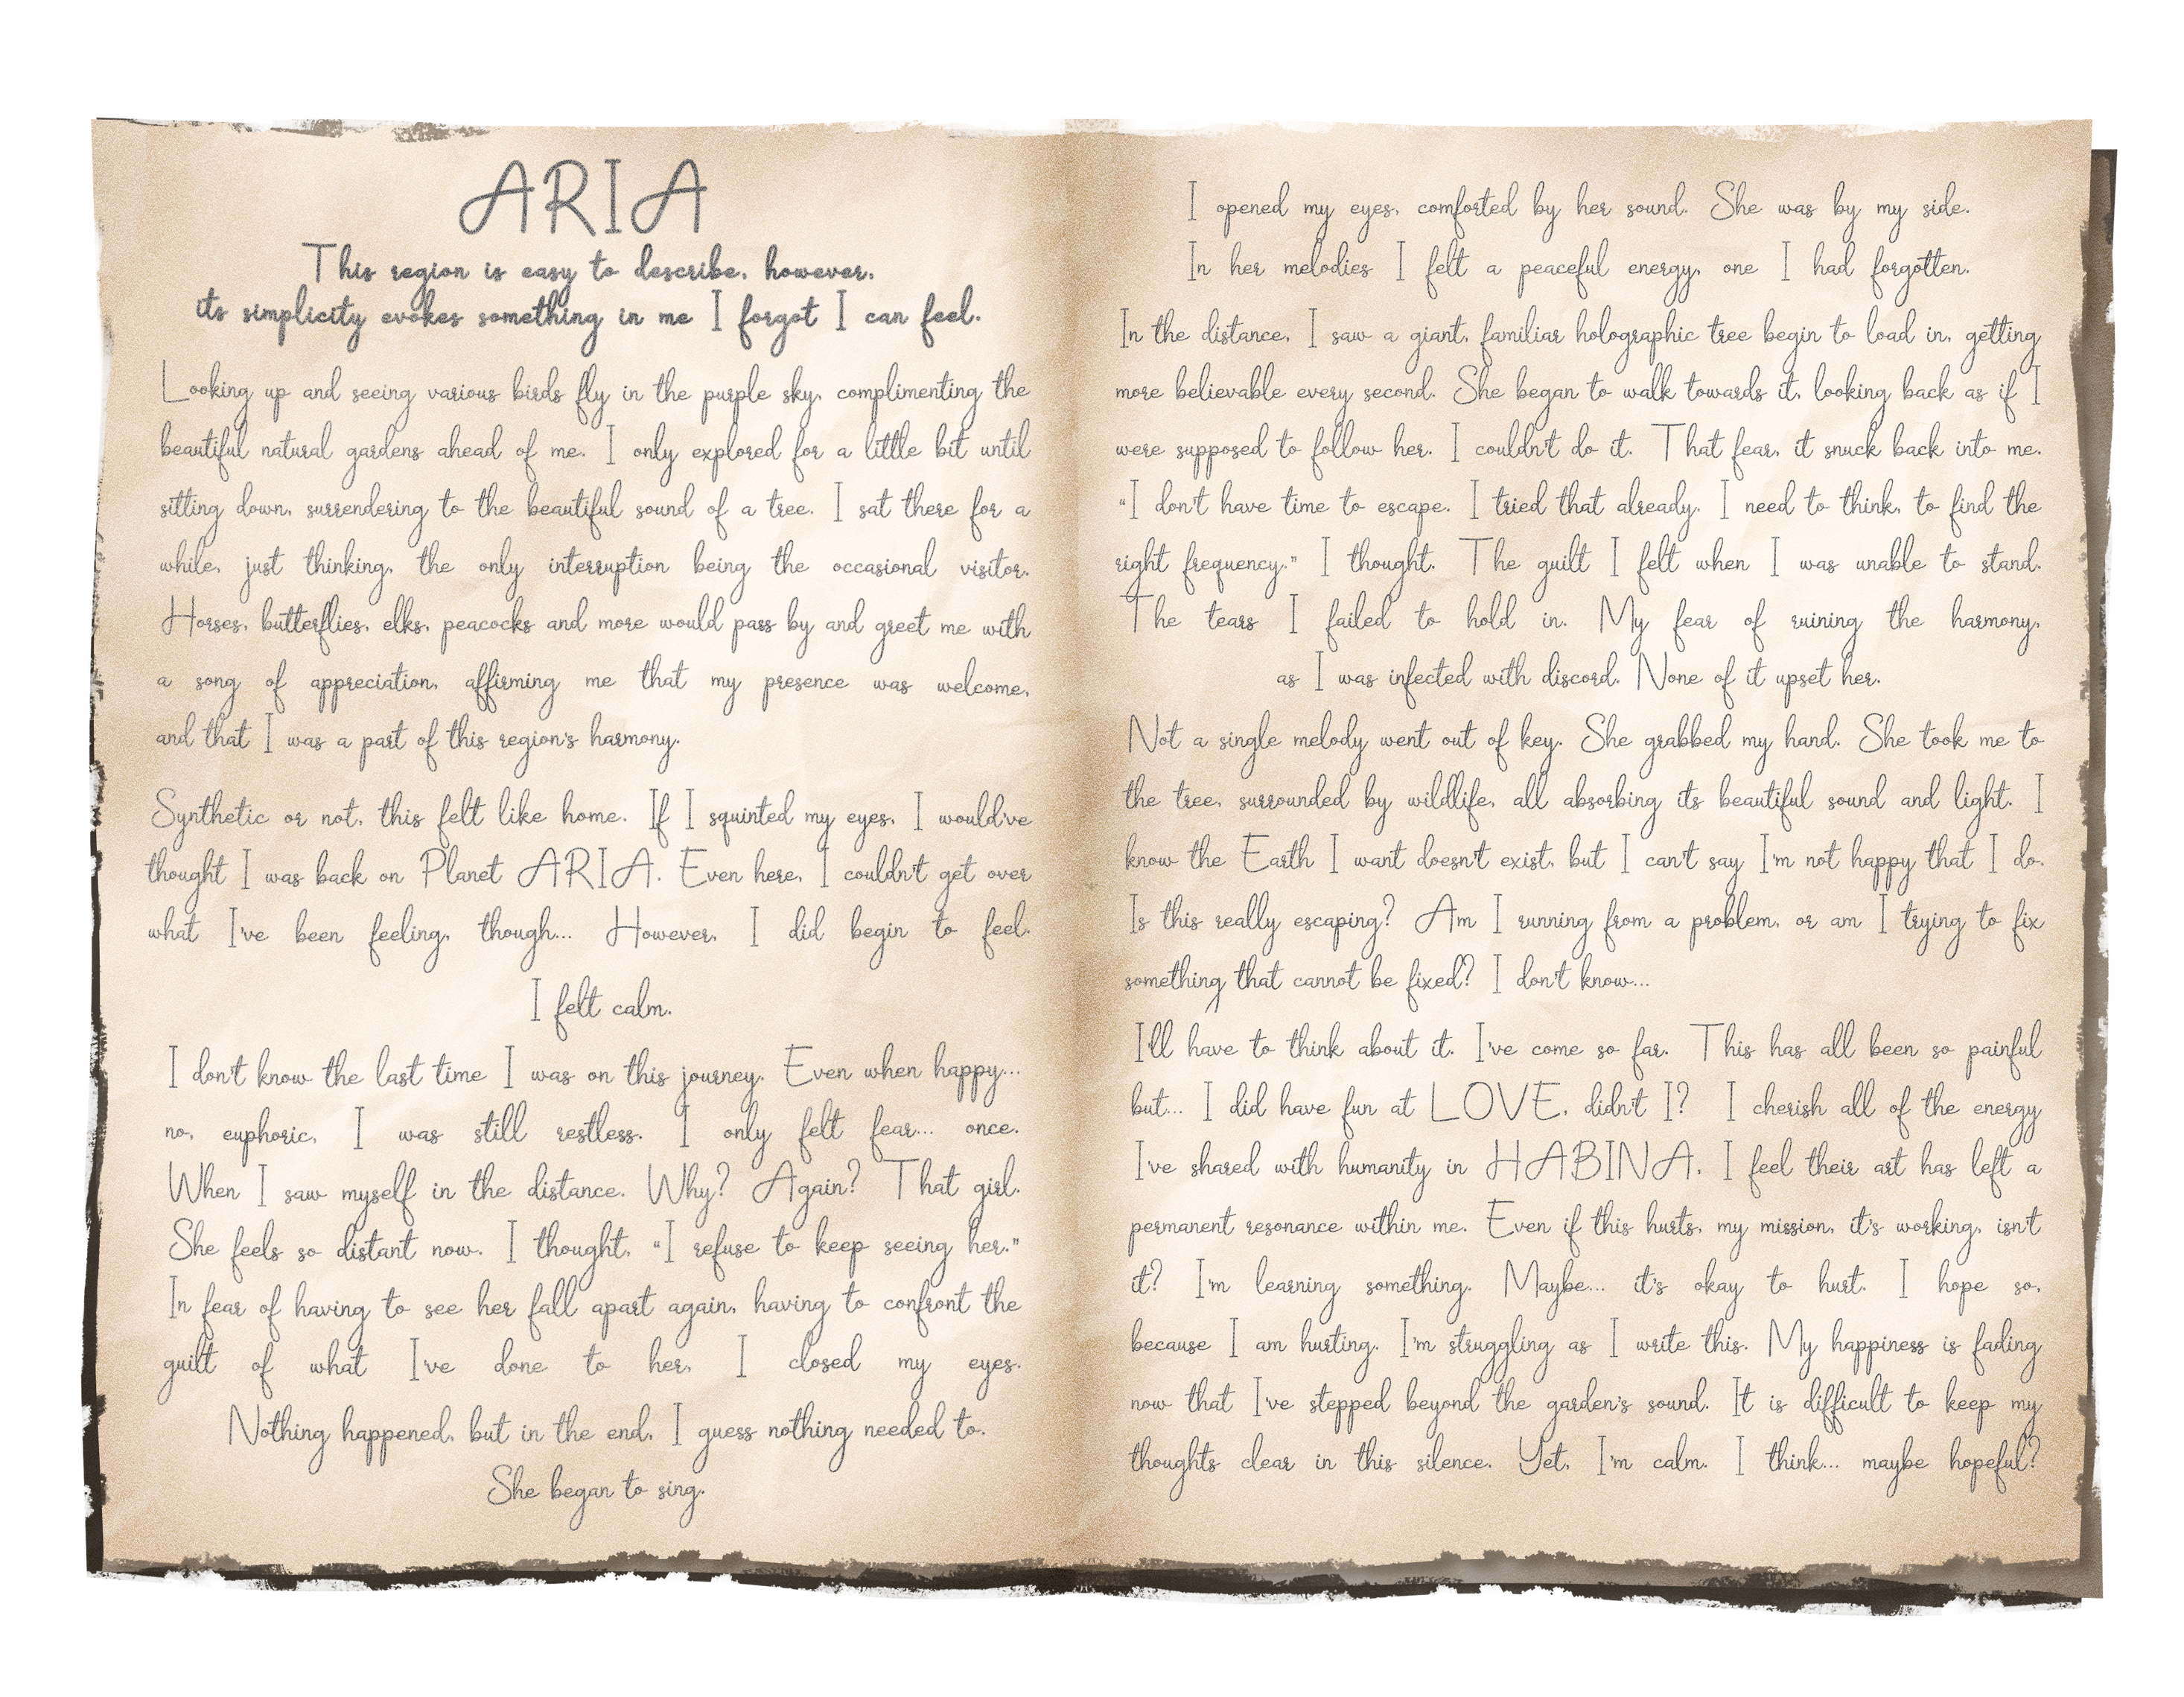 ARIA
This region is easy to describe, however,
its simplicity evokes something in me I forgot I can feel.
Looking up and seeing various birds fly in the purple sky, complimenting the
beautiful natural gardens ahead of me. I only explored for a little bit until
sitting down, surrendering to the beautiful sound of a tree. I sat there for a
while, just thinking, the only interruption being the occasional visitor.
Horses, butterflies, elks, peacocks and more would pass by and greet me with
a song of appreciation, affirming me that my presence was welcome,
and that I was a part of this region's harmony.
Synthetic or not, this felt like home. If I squinted my eyes, I would've
thought I was back on Planet ARIA. Even here, I couldn't get over
what I've been feeling, though... However, I did begin to feel.
I felt calm.
I don't know the last time I was on this journey. Even when happy...
no, euphoric, I was still restless. I only felt fear... once.
When I saw myself in the distance. Why? Again? That girl.
She feels so distant now. I thought, "I refuse to keep seeing her."
In fear of having to see her fall apart again, having to confront the
guilt of what I've done to her, I closed my eyes.
Nothing happened, but in the end, I guess nothing needed to.
She began to sing.
I opened my eyes, comforted by her sound. She was by my side.
In her melodies I felt a peaceful energy, one I had forgotten.
In the distance, I saw a giant, familiar holographic tree begin to load in, getting
more believable every second. She began to walk towards it, looking back as if I
were supposed to follow her. I couldn't do it. That fear, it snuck back into me.
"I don't have time to escape. I tried that already. I need to think, to find the
right frequency." I thought. The guilt I felt when I was unable to stand.
The tears I failed to hold in. My fear of ruining the harmony,
as I was infected with discord. None of it upset her.
Not a single melody went out of key. She grabbed my hand. She took me to
the tree, surrounded by wildlife, all absorbing its beautiful sound and light. I
know the Earth I want doesn't exist, but I can't say I'm not happy that I do.
Is this really escaping? Am I running from a problem, or am I trying to fix
something that cannot be fixed? I don't know...
I'll have to think about it. I've come so far. This has all been so painful
but... I did have fun at LOVE, didn't I? I cherish all of the energy
I've shared with humanity in HABINA, I feel their art has left a
permanent resonance within me. Even if this hurts, my mission, it's working, isn't
it? I'm learning something. Maybe... it's okay to hurt. I hope so,
because I am hurting. I'm struggling as I write this. My happiness is fading
now that I've stepped beyond the garden's sound. It is difficult to keep my
thoughts clear in this silence. Yet, I'm calm. I think... maybe hopeful?